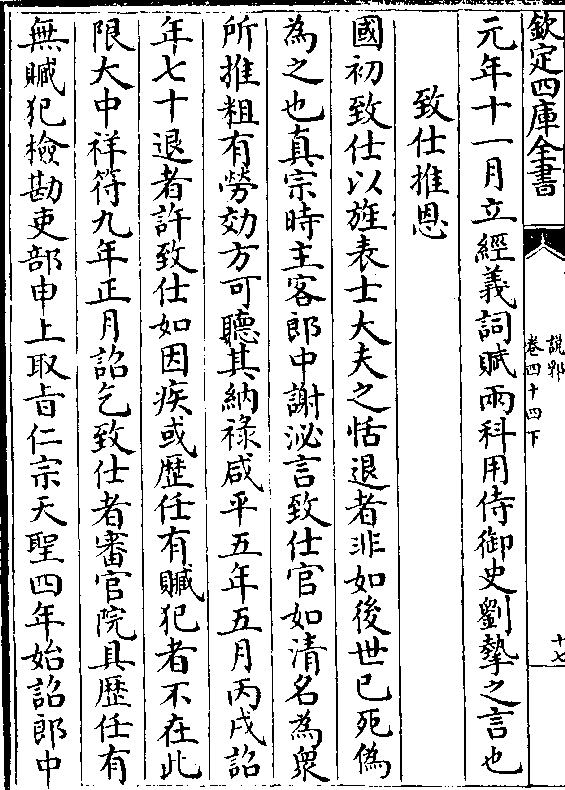 欽定四庫全書
說郛
卷四十四下
十七
元年十一月立經義詞賦兩科用侍御史劉摯之言也
致仕推恩
國初致仕以旌表士大夫之恬退者非如後世已死偽
為之也真宗時主客郎中謝泌言致仕官如清名為衆
所推粗有勞効方可聽其納祿咸平五年五月丙戌詔
年七十退者許致仕如因疾或歴任有贓犯者不在此
限大中祥符九年正月詔乞致仕者審官院具歴任有
無贓犯檢勘吏部申上取旨仁宗天聖四年始詔郎中